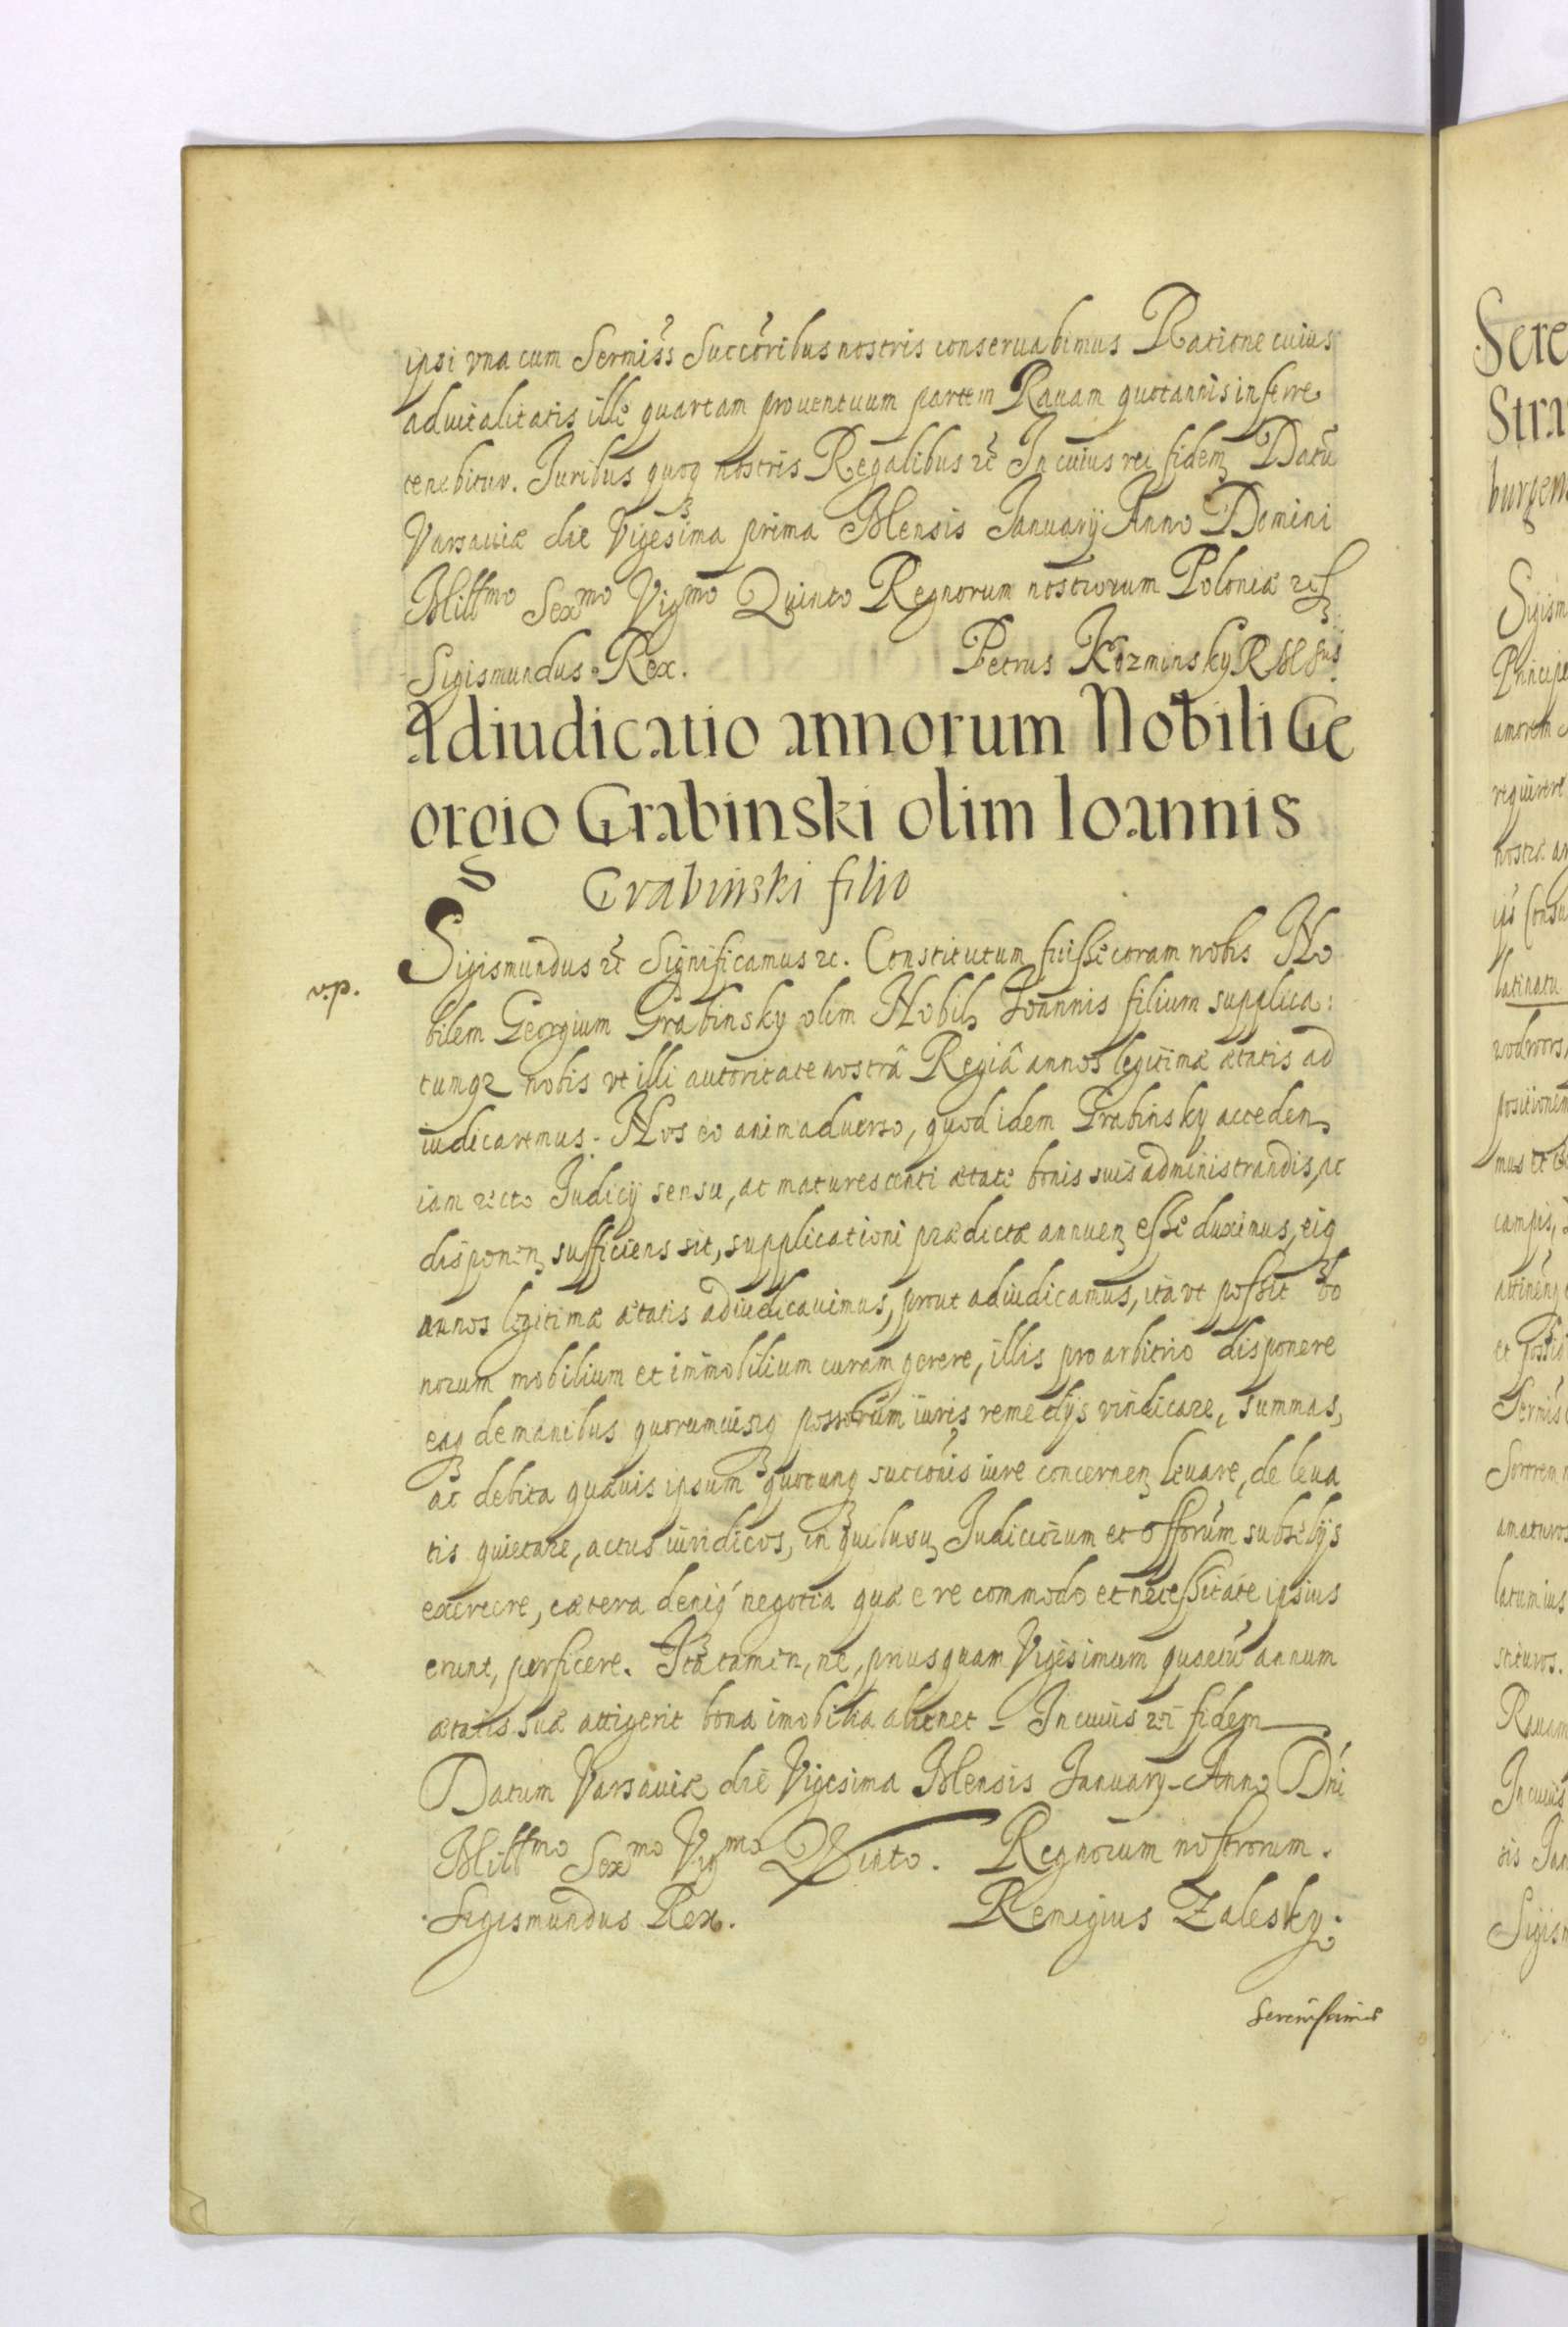 ipsi vna cum Sermiss Succoribus nostris conseruabimus Ratione cuius
aduitalitatis ille quartam prouentuum partem Rauam quotannis inferre
tenebitur. Iuribus quoq nostris Regalibus etc In cuius rei fidem Datu
Varsauiæ die Vigesima prima Mensis Ianuarij Anno Domini
Millmo Sexmo Vigmo Quinto Regnorum nostrorum Poloniæ etc
Sigismundus Rex. Petrus Kozminsky R M Sus
Adiudicatio annorum Nobili Ge
orgio Grabinski olim Ioannis
Grabinski filio
Sigismundus etc Significamus etc. Constitutum fuisse coram nobis No
v.p.
bilem Georgium Grabinsky olim Nobil Ioannis filium supplica:
tumq nobis vt illi autoritate nostrâ Regiâ annos legitimæ ætatis ad
iudicaremus. Nos eo animaduerso, quod idem Grabinsky acceden
iam recto Iudicij sensu, ac maturescenti ætate bonis suis administrandis, ac
disponen sufficiens sit, supplicationi prædictæ annuen esse duximus, eiq
annos legitimæ ætatis adiudicauimus, prout adiudicamus, ita vt possit bo
norum mobilium et immobilium curam gerere, illis pro arbitrio disponere
eaq de manibus quorumuisq possorum iuris remedijs vindicare, summas,
ac debita quæuis ipsum quocunq succonis iure concernen leuare, de leua
tis quietare, actus iuridicos, in quibusuis Iudiciorum et offorum subselijs
exercere, cætera deniq negotia quæ e re commodo et necessitate ipsius
erunt, perficere. Ita tamen, ne, priusquam Vigesimum quartu annum
ætatis suæ attigerit bona imobilia alienet - In cuius rei fidem
Datum Varsauiæ die Vigesima Mensis Ianuary Anno Dni
Millmo Sexmo Vigmo Quinto. Regnorum nostrorum.
Sigismundus Rex. Remigius Zalesky.
Serenissimus